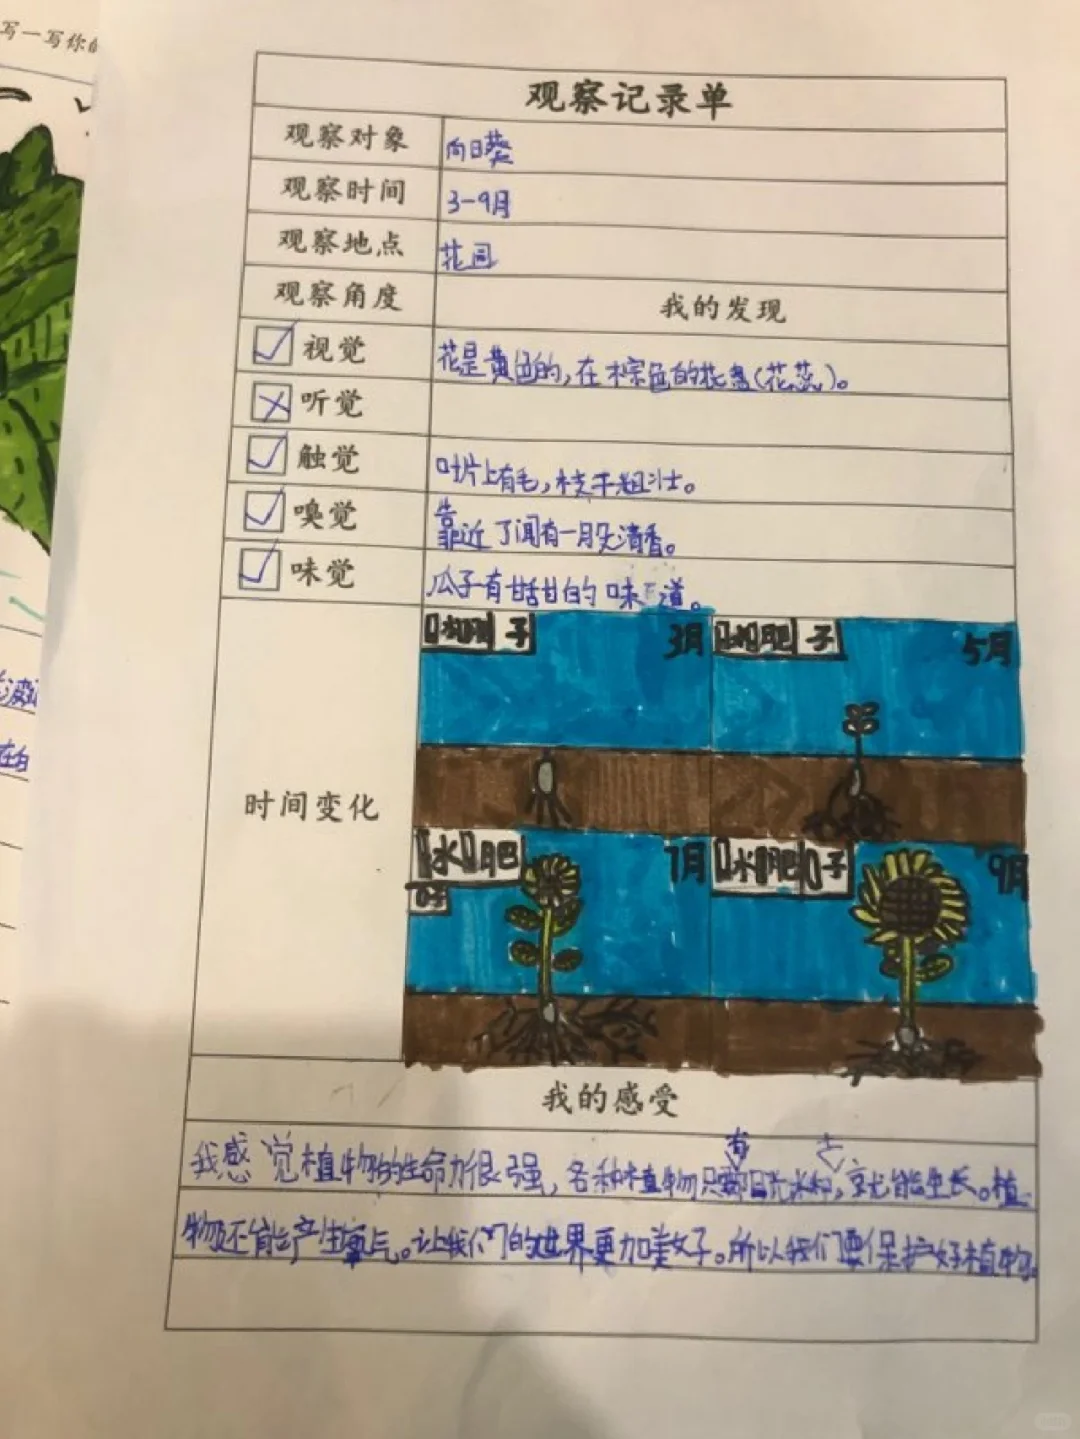 写一写你的
观察记录单
观察对象 向日葵
观察时间 3-9月
观察地点 花园
观察角度 我的发现
视觉 花是黄色的,在棕色的花盘(花蕊)。
听觉
触觉 叶片上有毛,枝干粗壮。
嗅觉 靠近了闻有一股清香。
味觉 瓜子有甜甜的味道。
子 3月 肥 子 5月
时间变化
水 肥 7月 水 肥 子 9月
我的感受
有
我感觉植物的生命力很强,各种植物只要阳光水和,就能生长。植
物还能产生氧气。让我们的世界更加美好。所以我们要保护好植物。